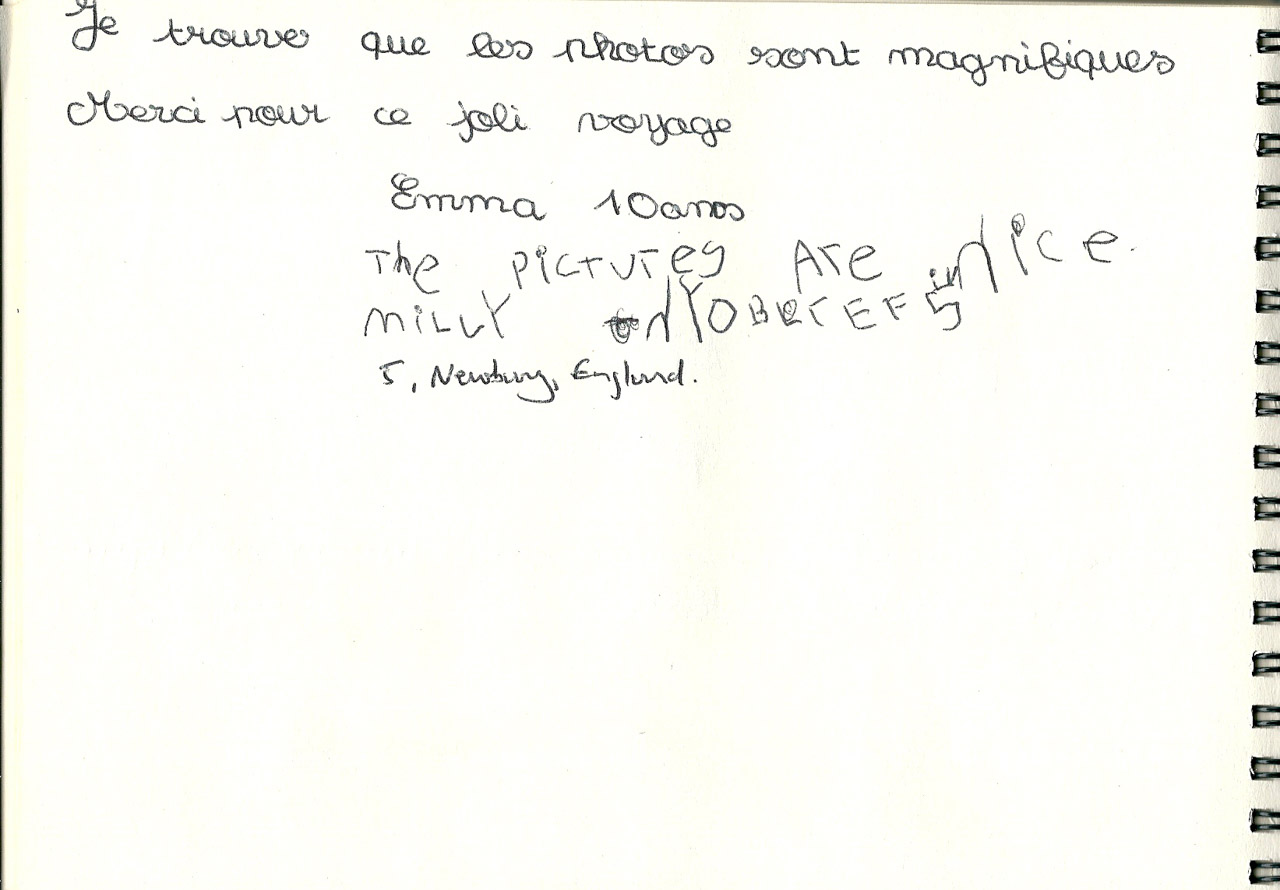 Je trouve que les photos sont magnifiques
Merci pour ce joli voyage
Emma 10 ans
The pictures Are Nice.
MiLLY
5, Newbury, England.